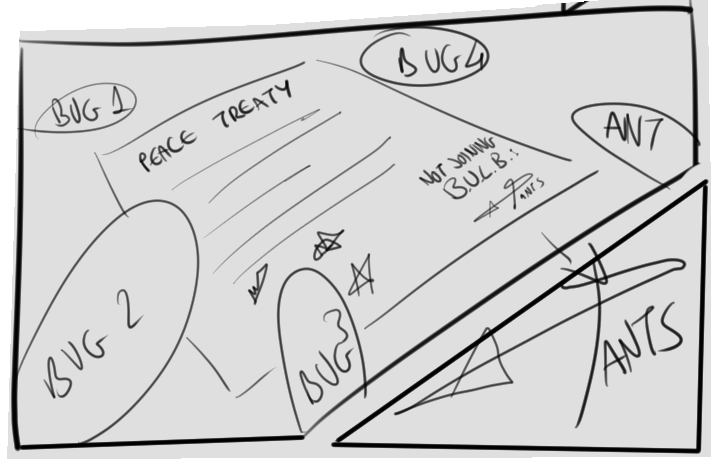 BUG 1
BUG 4
PEACE TREATY
ANT
NOT JOINING
B.U.L.B.:
ANTS
BUG 2
BUG 3
ANTS